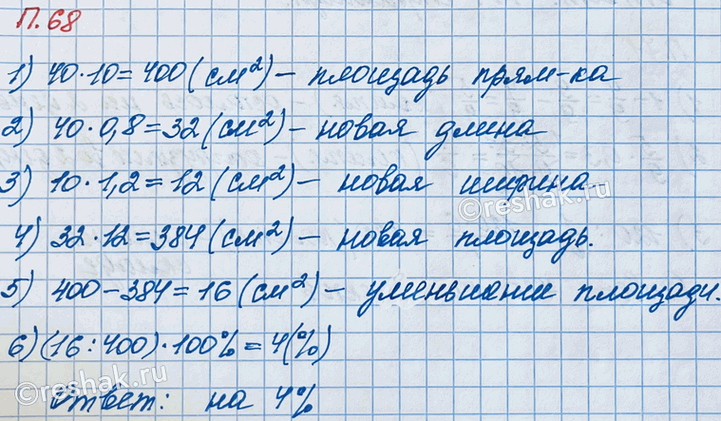 П.68
1) 40·10=400 (см²) – площадь прям-ка
2) 40·0,8=32 (см²) – новая длина
3) 10·1,2=12 (см²) – новая ширина.
4) 32·12=384 (см²) – новая площадь.
5) 400–384=16 (см²) – уменьшили площади.
6) (16:400)·100%=4(%)
Ответ: на 4%
©reshak.ru
©reshak.ru
©reshak.ru